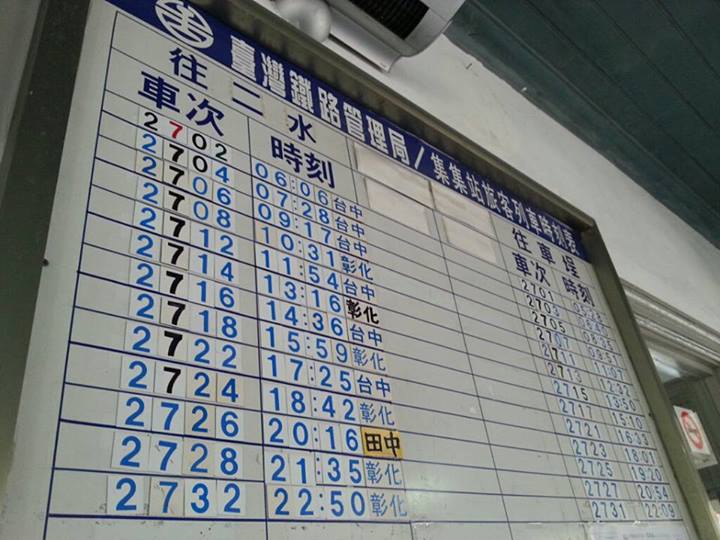 臺灣鐵路管理局/集集站旅客列車時刻表
往二水 往車埕
車次 時刻 車次 時刻
2702 06:06 台中 2701
2704 07:28 台中 2703
2706 09:17 台中 2705
2708 10:31 彰化 2707 09:52
2712 11:54 台中 2711 11:07
2714 13:16 彰化 2713
2716 14:36 台中 2715 13:50
2718 15:59 彰化 2717 15:10
2722 17:25 台中 2721 16:39
2724 18:42 彰化 2723 18:01
2726 20:16 田中 2725 19:20
2728 21:35 彰化 2727 20:54
2732 22:50 彰化 2731 22:09